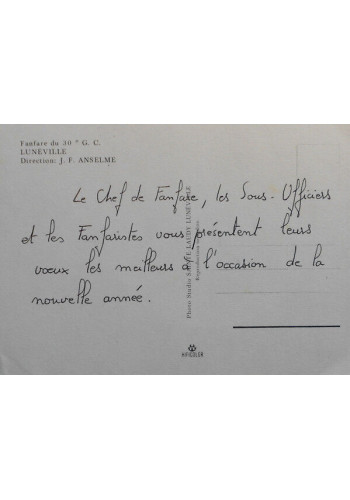 Fanfare du 30 e G. C.
LUNÉVILLE
Direction: J. F. ANSELME
Le Chef de Fanfare, les Sous-Officiers
et les Fanfaristes vous présentent leurs
vœux les meilleurs à l'occasion de la
nouvelle année.
Photo Studio LAUDY LUNÉVILLE
Reproduction